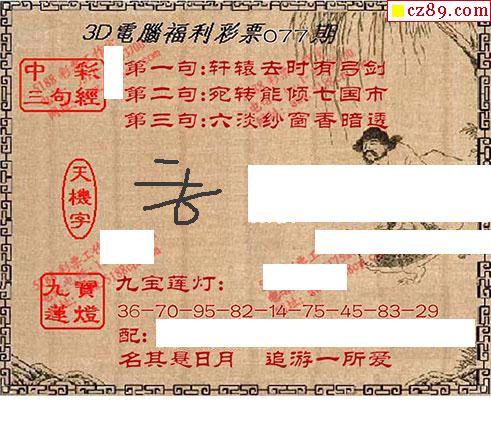 cz89.com
3D電腦福利彩票077期
中彩三句經
第一句:轩辕去时有弓剑
第二句:宛转能倾七国市
第三句:六淡纱窗香暗透
天機字
九寶蓮燈
九宝莲灯:
36-70-95-82-14-75-45-83-29
配:
名其悬日月 追游一所爱